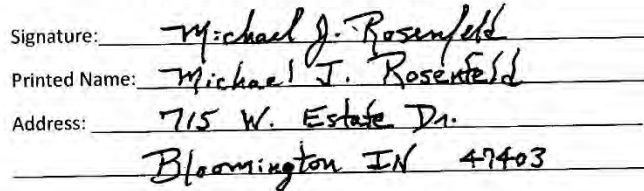 Signature: Michael J. Rosenfeld
Printed Name: Michael J. Rosenfeld
Address: 715 W. Estate Dr.
Bloomington IN 47403